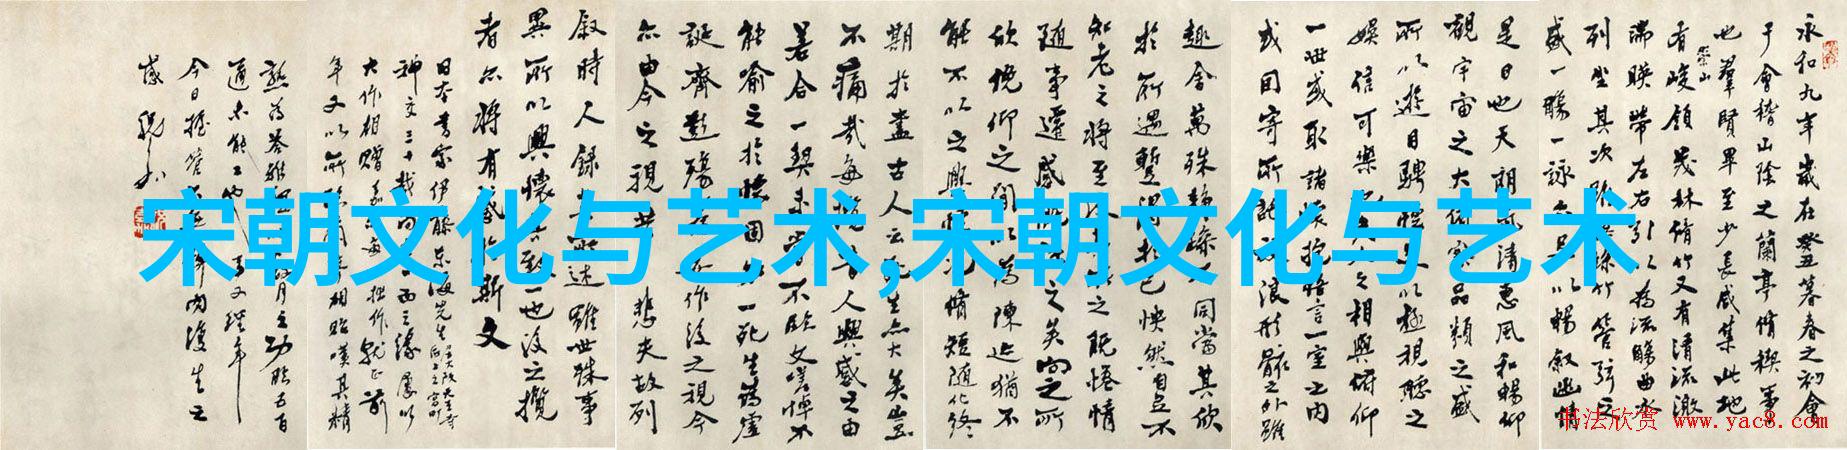 永和九年歲在癸丑暮春之初會
于會稽山陰之蘭亭脩稧事
也羣賢畢至少長咸集此地
有崇山峻領茂林脩竹又有清流激
湍暎帶左右引以為流觴曲水
列坐其次雖無絲竹管弦之
盛一觴一詠亦足以暢敘幽情
是日也天朗氣清惠風和暢仰
觀宇宙之大俯察品類之盛
所以遊目騁懷足以極視聽之
娛信可樂也夫人之相與俯仰
一世或取諸懷抱悟言一室之內
或因寄所託放浪形骸之外雖
趣舍萬殊靜躁不同當其欣
於所遇蹔得於己怏然自足不
知老之將至及其所之既惓情
隨事遷感慨係之矣向之所
欣俛仰之間以為陳迹猶不
能不以之興懷況脩短隨化終
期於盡古人云死生亦大矣豈
不痛哉每攬昔人興感之由
若合一契未嘗不臨文嗟悼不
能喻之於懷固知一死生為虛
誕齊彭殤為妄作後之視今
亦由今之視昔悲夫故列
敘時人錄其所述雖世殊事
異所以興懷其致一也後之攬
者亦將有感於斯文
日本書家伊藤東海先生
神交三十載
大作相贈
宋朝文化与艺术,宋朝文化与艺术
书法欣赏 www.yac8.com